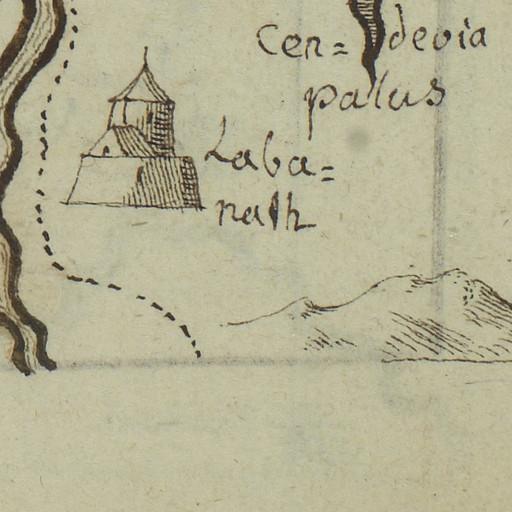 Cen= devia
palus
Laba=
nath